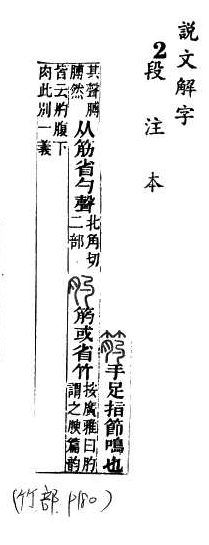 說文解字
2段注本
手足指節鳴也
其聲膊
膊然
从筋省勺聲
北角切
二部
或省竹
按廣雅曰肑
謂之腴篇韵
皆云肑腹下
肉此別一義
(竹部.P180)